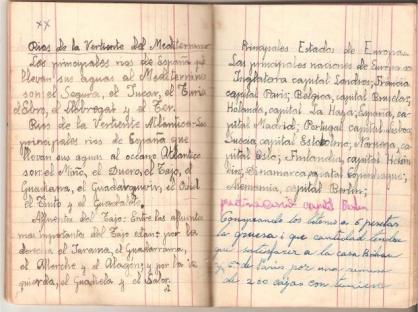 xx
Rios de la Vertiente del Mediterraneo
Los principales rios de España que
llevan sus aguas al Mediterraneo
son: el Segura, el Jucar, el Turia
el Ebro, el Llobregat y el Ter.
Rios de la Vertiente Atlántica-Los
principales rios de España que
llevan sus aguas al oceano Atlantico
son: el Miño, el Duero, el Tajo, el
Guadiana, el Guadalquivir, el Odiel
el Tinto y el
Afluentes del Tajo: Entre los afluentes
mas importantes del Tajo estan: por la
derecha el Jarama, el Guadarrama,
el Alberche y el Alagón; y por la iz
quierda, el Guadiela y el Salor.
Principales Estados de Europa
Las principales naciones de Europa son
Inglaterra capital Londres; Francia,
capital Paris; Belgica, capital Bruselas
Holanda, capital La Haya; España, ca
pital Madrid; Portugal capital Lisboa
Suecia capital Estocolmo; Noruega, ca
pital Oslo; Finlandia, capital Helsin
Dinamarca capital Copenhague;
Alemania, capital Berlin;
capital Berlin
Comprando los a 6 pesetas
la gruesa; que cantidad tendre
que satisfacer a la casa
de Paris por una remesa
de 200 cajas con